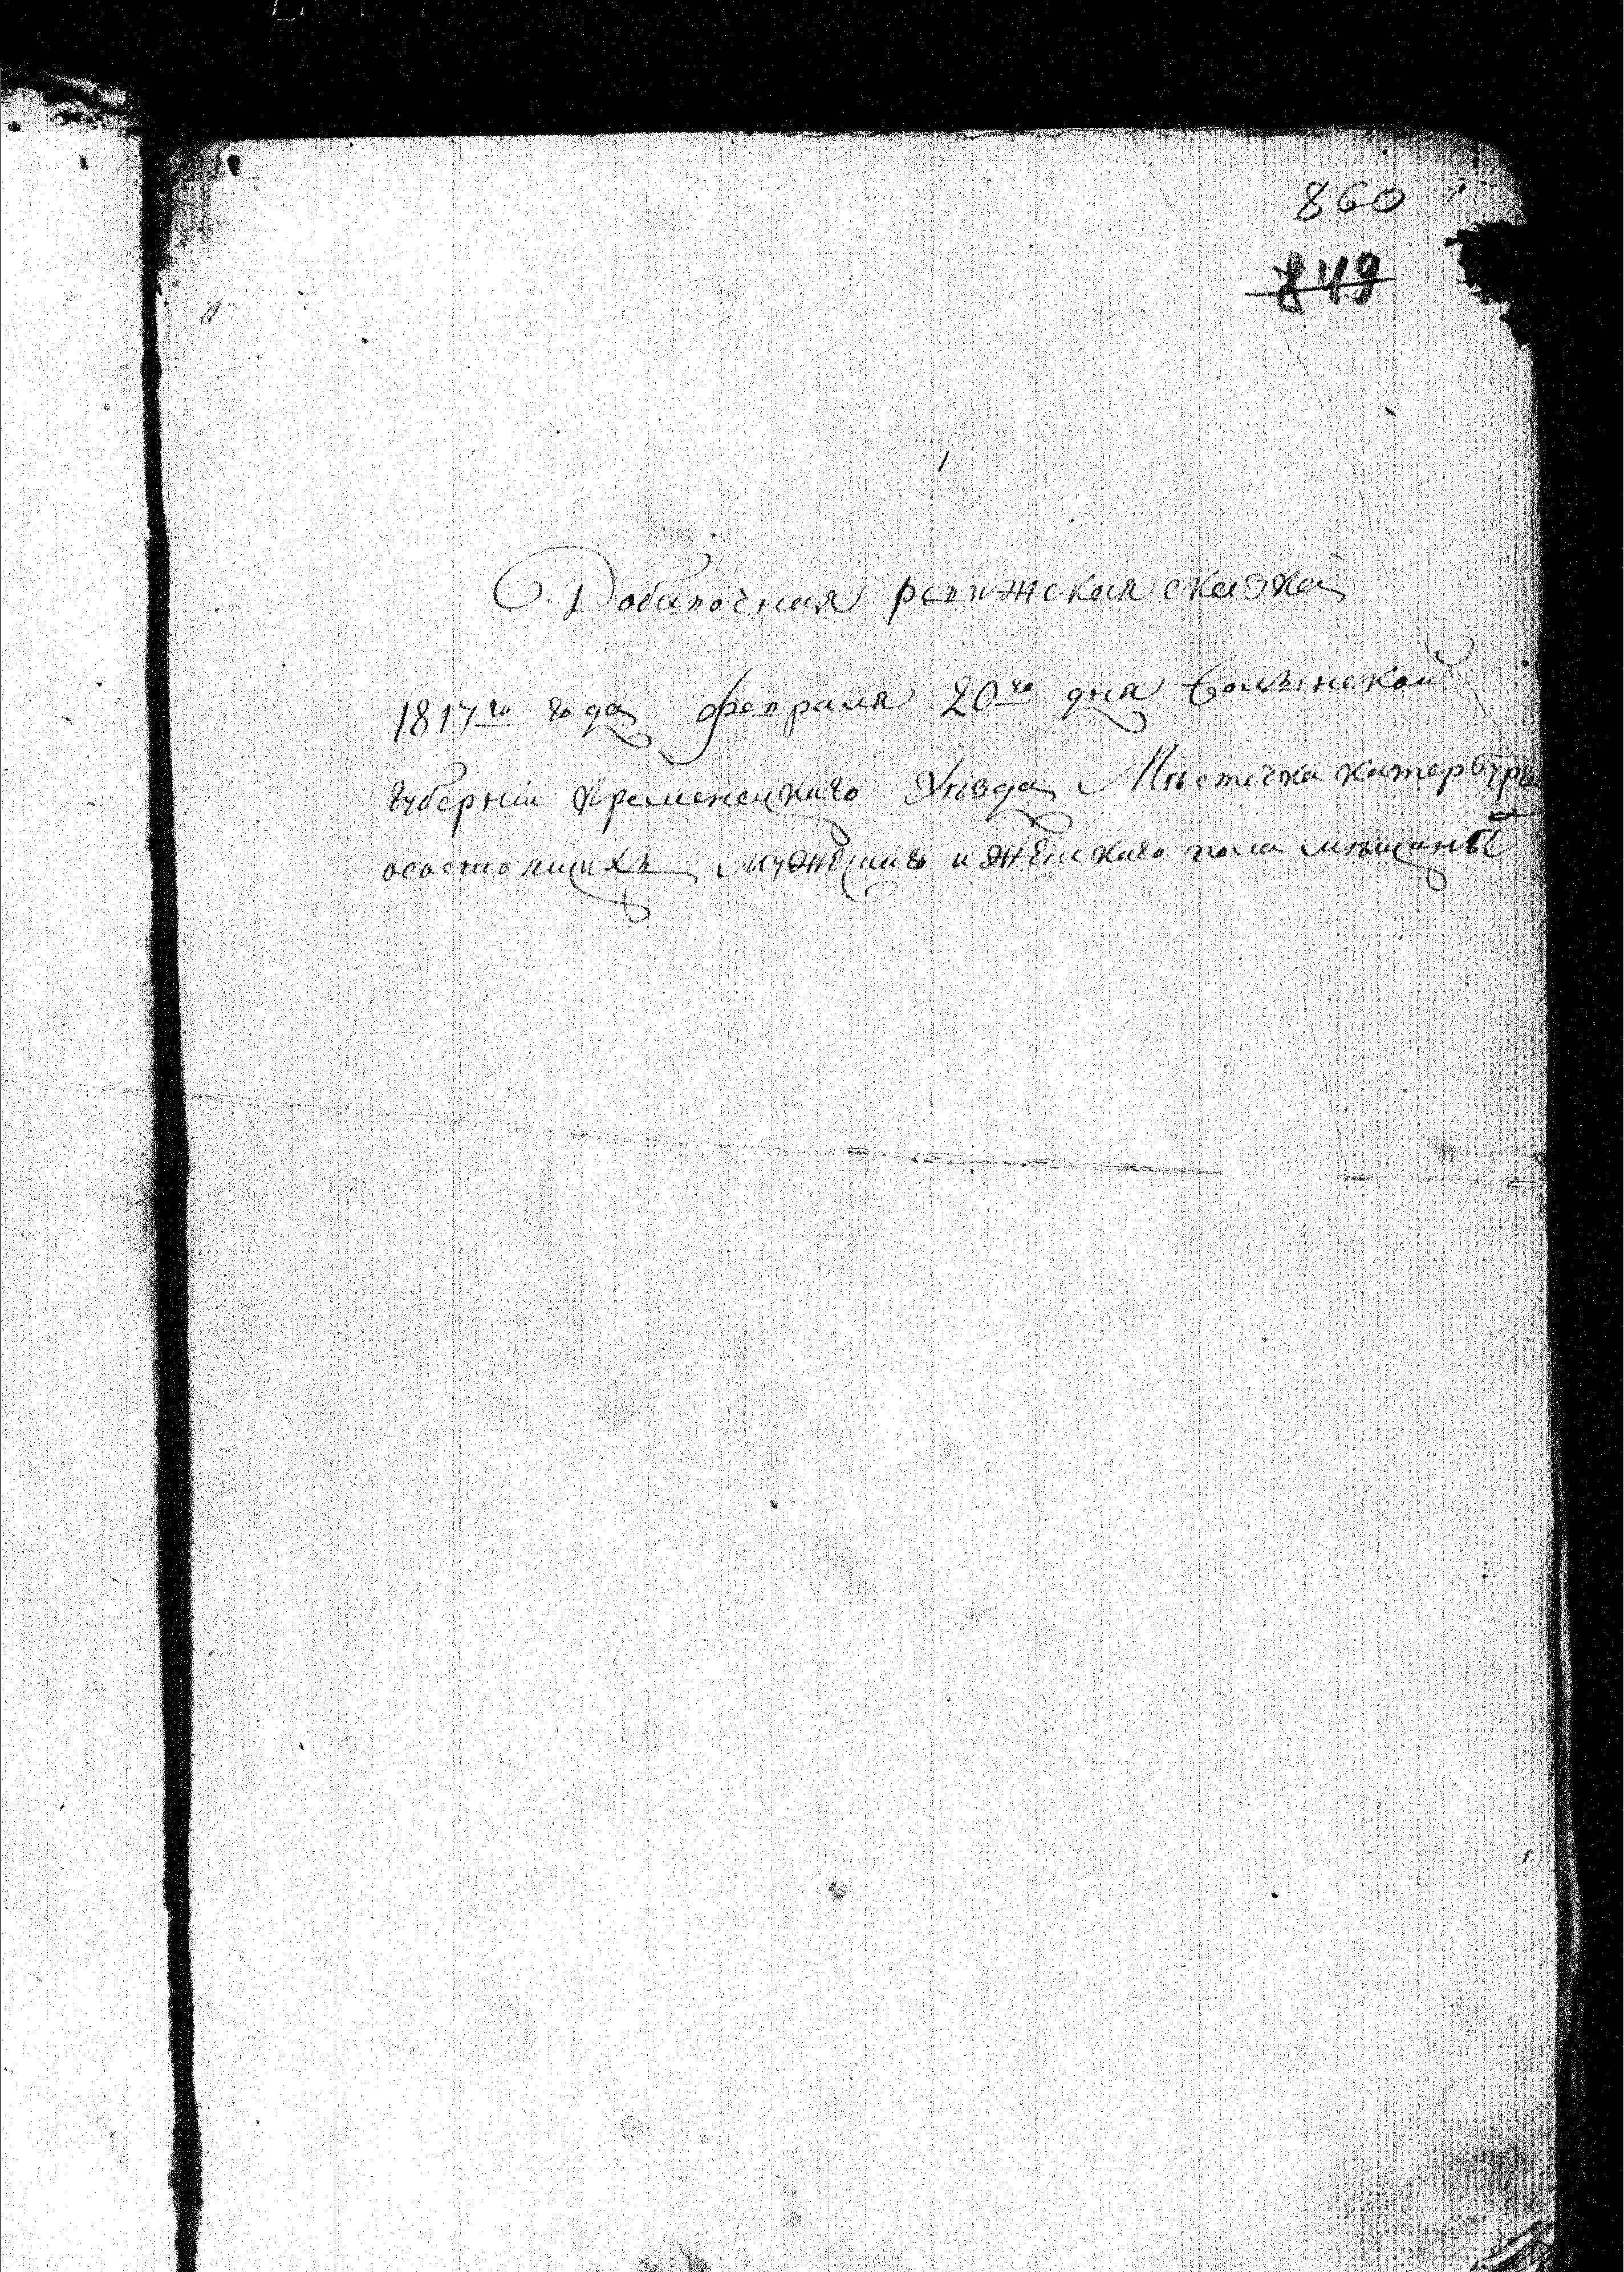 860
849
Добавочная ревижская сказка
1817го года февраля 20го дня Волынской
губерніи Кременецкаго Уѣзда Мѣстечка Катербурга
осостоящихъ мужеска и женскаго пола мѣщаны